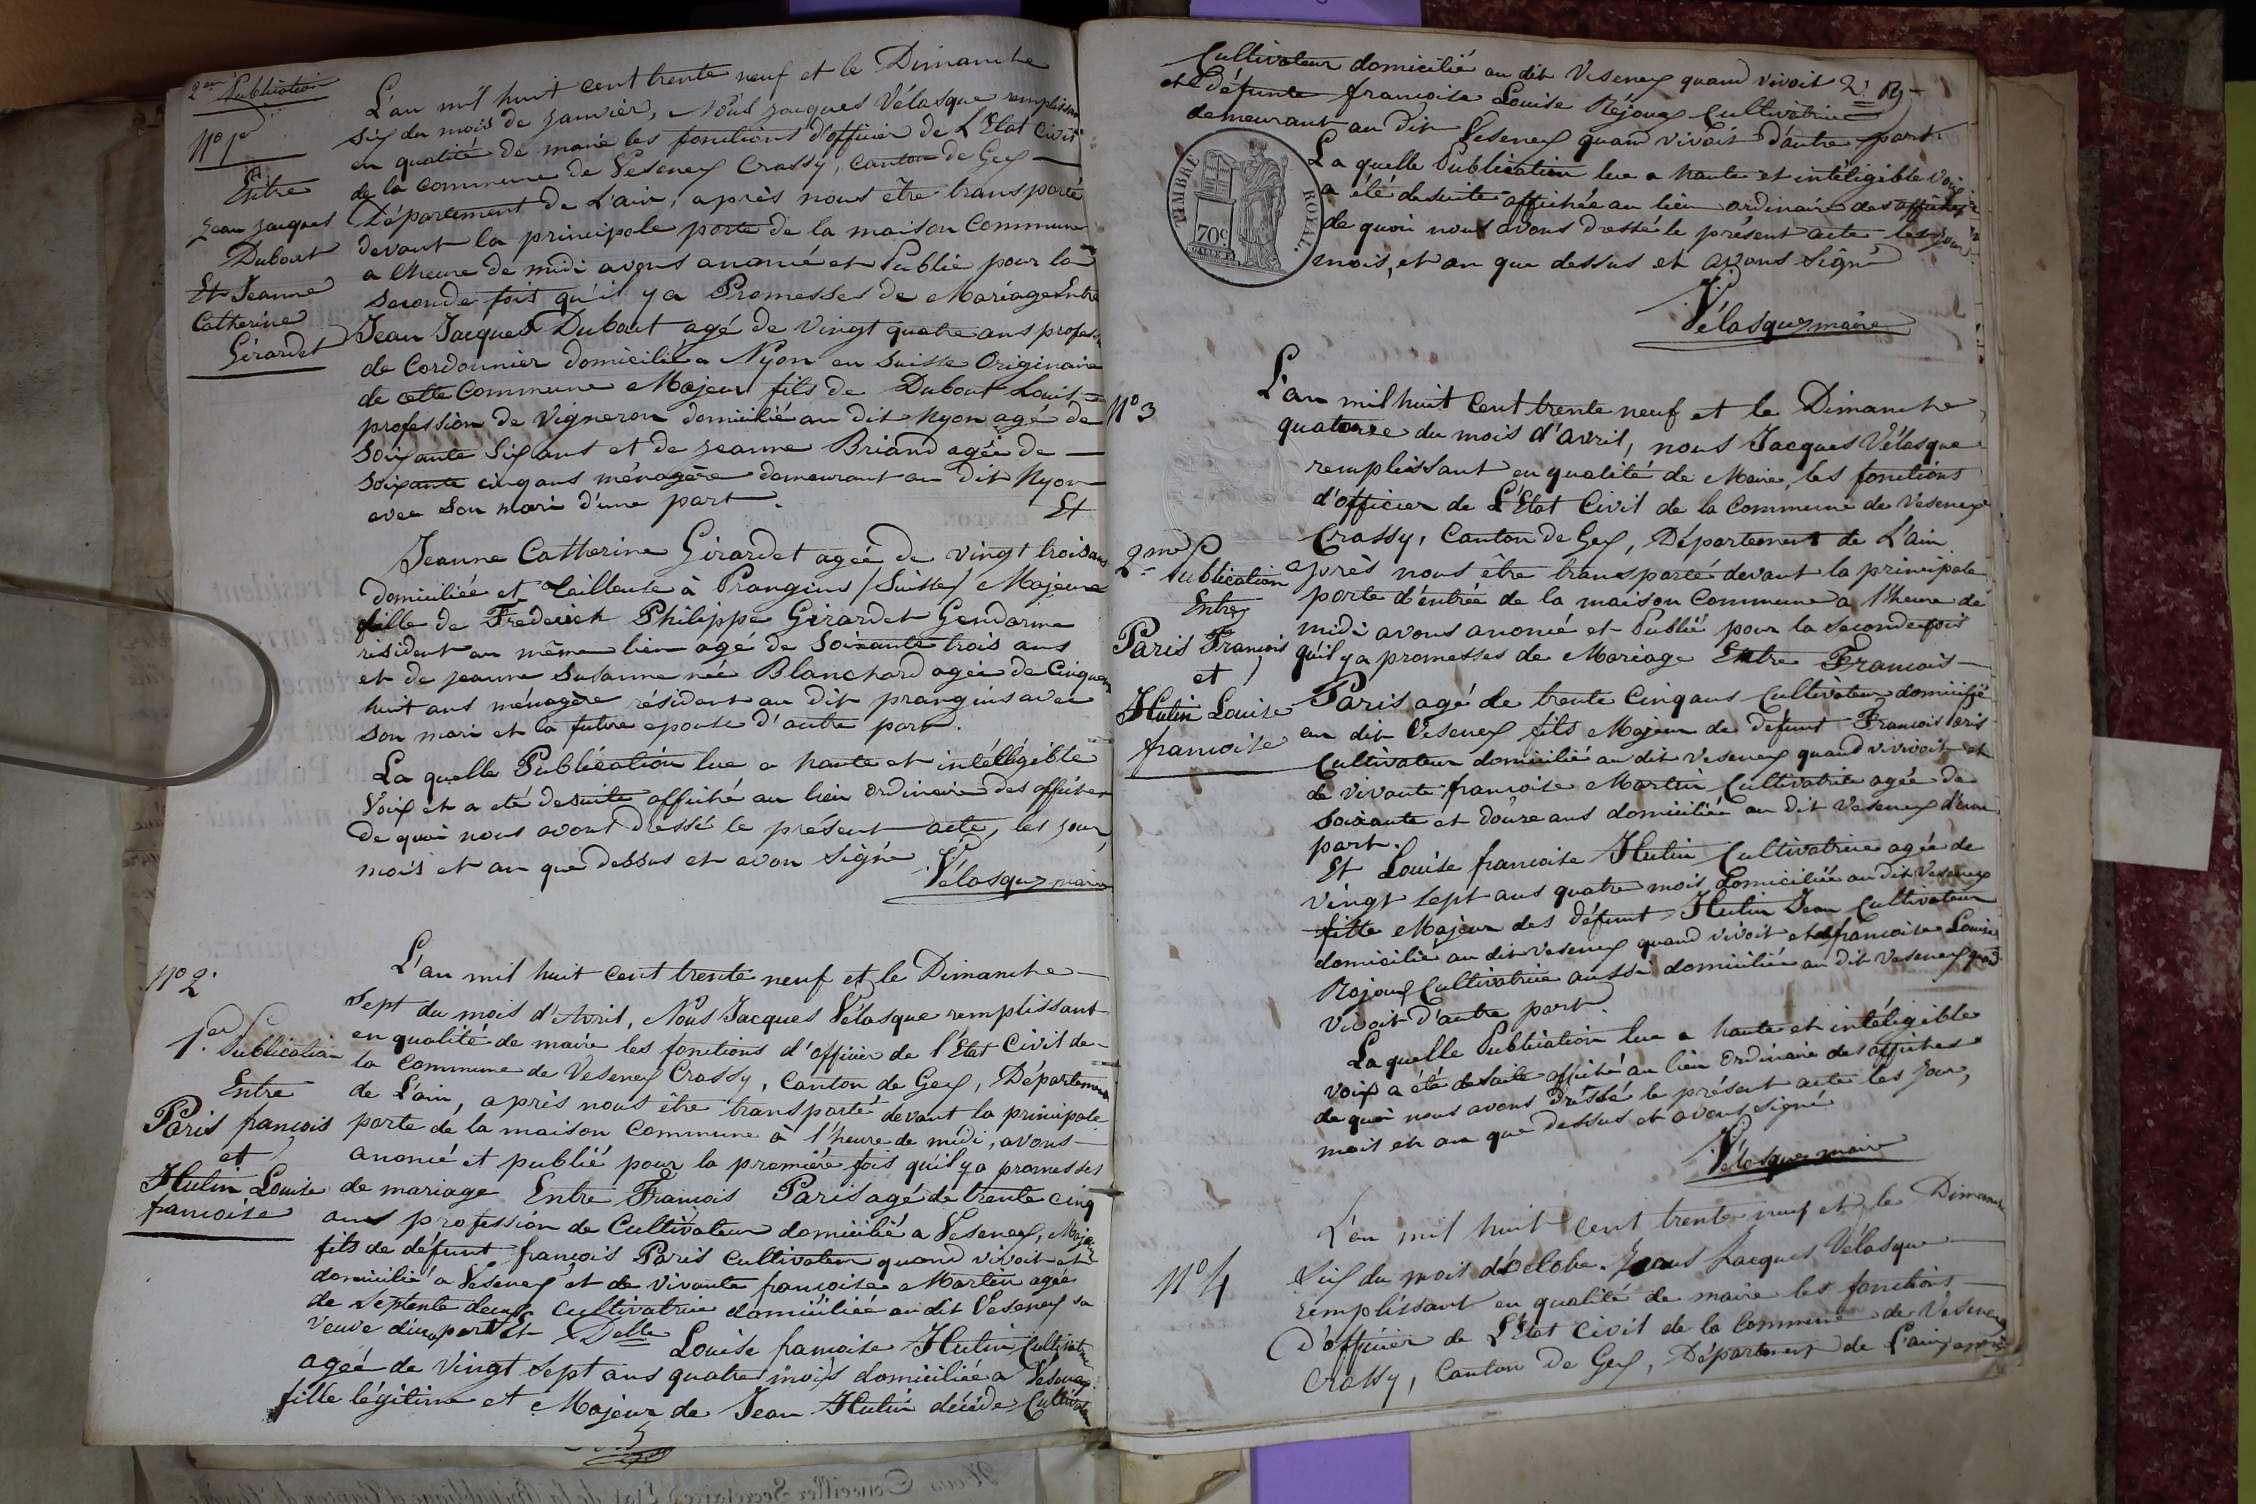 2em Publication
No 1er
Entre
Jean Jacques
Dubout
Et Jeanne
Catherine
Girardet
L'an mil huit cent trente neuf et le Dimanche
Six du mois de Janvier, Nous Jacques Vélasque remplissan
en qualité de maire les fonctions d'officier de L'Etat Civil
de la Commune de Vesenex Crassy, Canton de Gex
Département de L'ain, après nous être transporté
devant la principale porte de la maison Commune
a l'heure de midi avons anoncé et Publié pour la
Seconde fois qu'il y a Promesses de Mariage Entre
Jean Jacques Dubout agé de Vingt quatre ans profes
de Cordonnier domicilié a Nyon en Suisse Originaire
de cette Commune Majeur fils de Dubout Louis
profession de Vigneron domicilié au dit Nyon agé de
Soixante Six ans et de Jeanne Briand agée de
Soixante cinq ans ménagère demeurant au dit Nyon
avec Son mari d'une part. Et
Jeanne Catherine Girardet agée de vingt trois ans
domiciliée et Tailleuse à Prangins /Suisse/ Majeure
fille de Frederick Philippe Girardet Gendarme
résident au même lieu agé de Soixante trois ans
et de Jeanne Susanne née Blanchard agée de Cinquan
huit ans ménagère résident au dit prangins avec
Son mari et la future epouse d'autre part.
La quelle Publication lue a haute et intélligible
Voix et a été desuite affiché au lieu Ordinaire des affiches
de quoi nous avons dressé le présent acte, les jour,
mois et an que dessus et avon Signé
Vélasque maire
No 2.
1er Publication
Entre
Paris françois
et
Hutin Louise
françoise
L'an mil huit cent trente neuf et le Dimanche
Sept du mois d'Avril, Nous Jacques Vélasque remplissant
en qualité de maire les fonctions d'officier de l'Etat Civil de
la Commune de Vesenex Crassy, Canton de Gex, Département
de L'ain, après nous être transporté devant la principale
porte de la maison Commune à l'heure de midi, avons
anoncé et publié pour la première fois qu'il y a promesses
de mariage Entre François Paris agé de trente cinq
ans profession de Cultivateur domicilié a Vesenex, Majeur
fils de défunt françois Paris Cultivateur quand vivoit et
domicilié a Vesenex et de Vivante françoise Martin agée
de Septente deux Cultivatrice domiciliée au dit Vesenex sa
veuve d'une part Et Delle Louise françoise Hutin Cultivatrice
agée de Vingt Sept ans quatre mois domiciliée a Vesenex
fille légitime et Majeur de Jean Hutin décédé Cultivateur
Cultivateur domicilié au dit Vesenex quand vivoit
et de défunte françoise Louise Réjoux Cultivatrice
demeurant au dit Vesenex quand vivoit d'autre part.
La quelle Publication lue a haute et intéligible Voix
a été desuite affichée au lieu ordinaire des affiches
de quoi nous avons dressé le présent acte les jour
mois, et an que dessus et avons Signé
TIMBRE ROYAL.
70c
Vélasque maire
No 3
2me Publication
Entre
Paris François
et
Hutin Louise
françoise
L'an mil huit Cent trente neuf et le Dimanche
quatorze du mois d'avril, nous Jacques Vélasque
remplissant en qualité de Maire, les fonctions
d'officier de L'Etat Civil de la Commune de Vesenex
Crassy, Canton de Gex, Département de L'ain
après nous être transporté devant la principale
porte d'entrée de la maison Commune a l'heure de
midi avons anoncé et Publié pour la Seconde fois
qu'il y a promesses de Mariage Entre Francois
Paris agé de trente Cinq ans Cultivateur domicilié
au dit Vesenex fils Majeur de défunt François Paris
Cultivateur domicilié au dit Vesenex quand vivoit et
de vivante françoise Martin Cultivatrice agée de
Soixante et douze ans domiciliée au dit Vesenex d'une
part.
Et Louise françoise Hutin Cultivatrice agée de
Vingt Sept ans quatre mois domiciliée au dit Vesenex
fille Majeur des défunt Hutin Jean Cultivateur
domicilié au dit Vesenex quand vivoit et de françoise Louise
Rojoux Cultivatrice aussi domiciliée au dit Vesenex quand
Vivoit d'autre part.
La quelle Publication lue a haute et intéligible
voix a été desuite affiché au lieu Ordinaire des affiches
de quoi nous avons dressé le présent acte les jour,
mois et an que dessus et avons signé
Vélasque maire
No 4
L'an mil huit cent trente neuf et le Dimanche
Six du mois d'octobre. Nous Jacques Vélasque
remplissant en qualité de maire les fonctions
d'officier de L'Etat Civil de la Commune de Vesenex
Crassy, Canton de Gex, Département de L'ain après